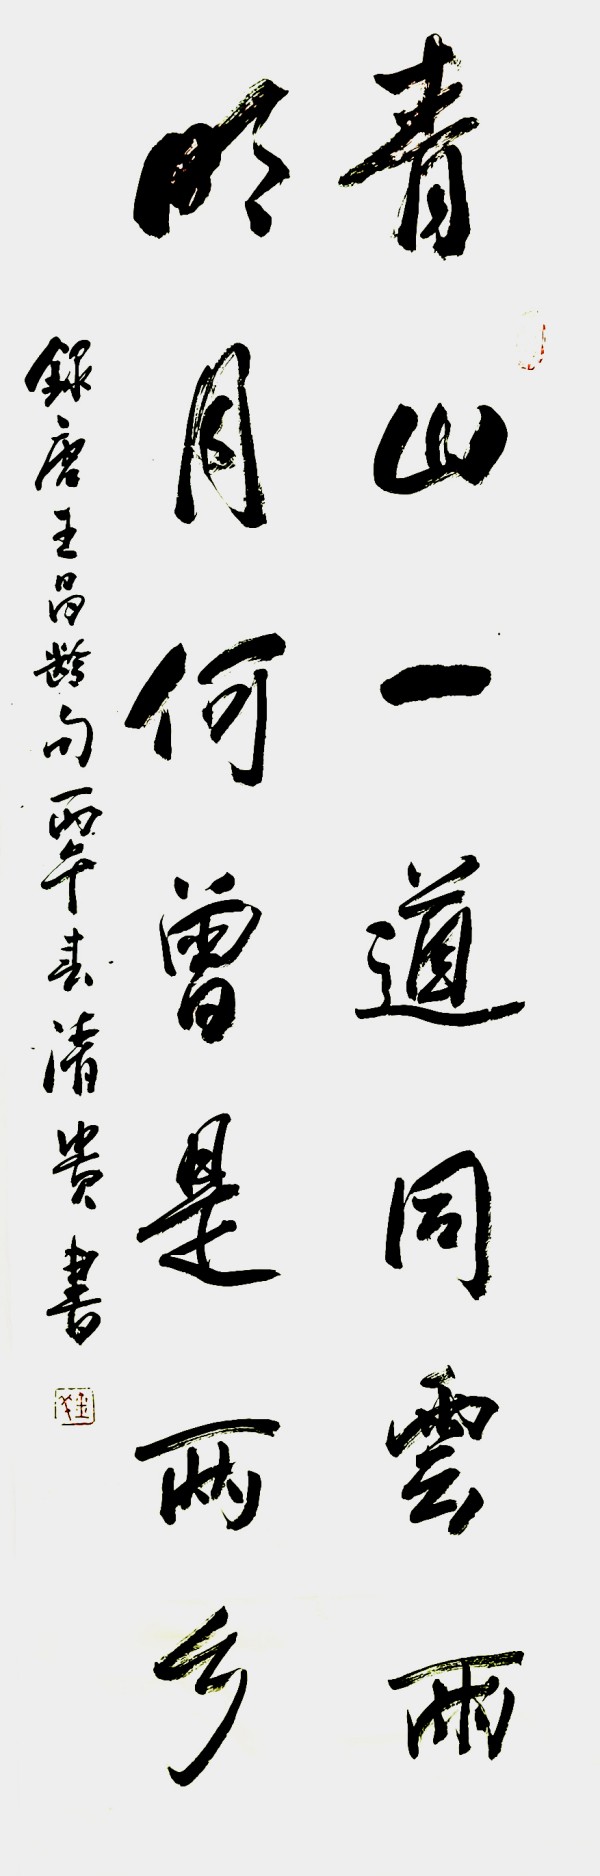 青山一道同雲雨
明月何曾是两乡
録唐王昌齡句丙午春清贵書